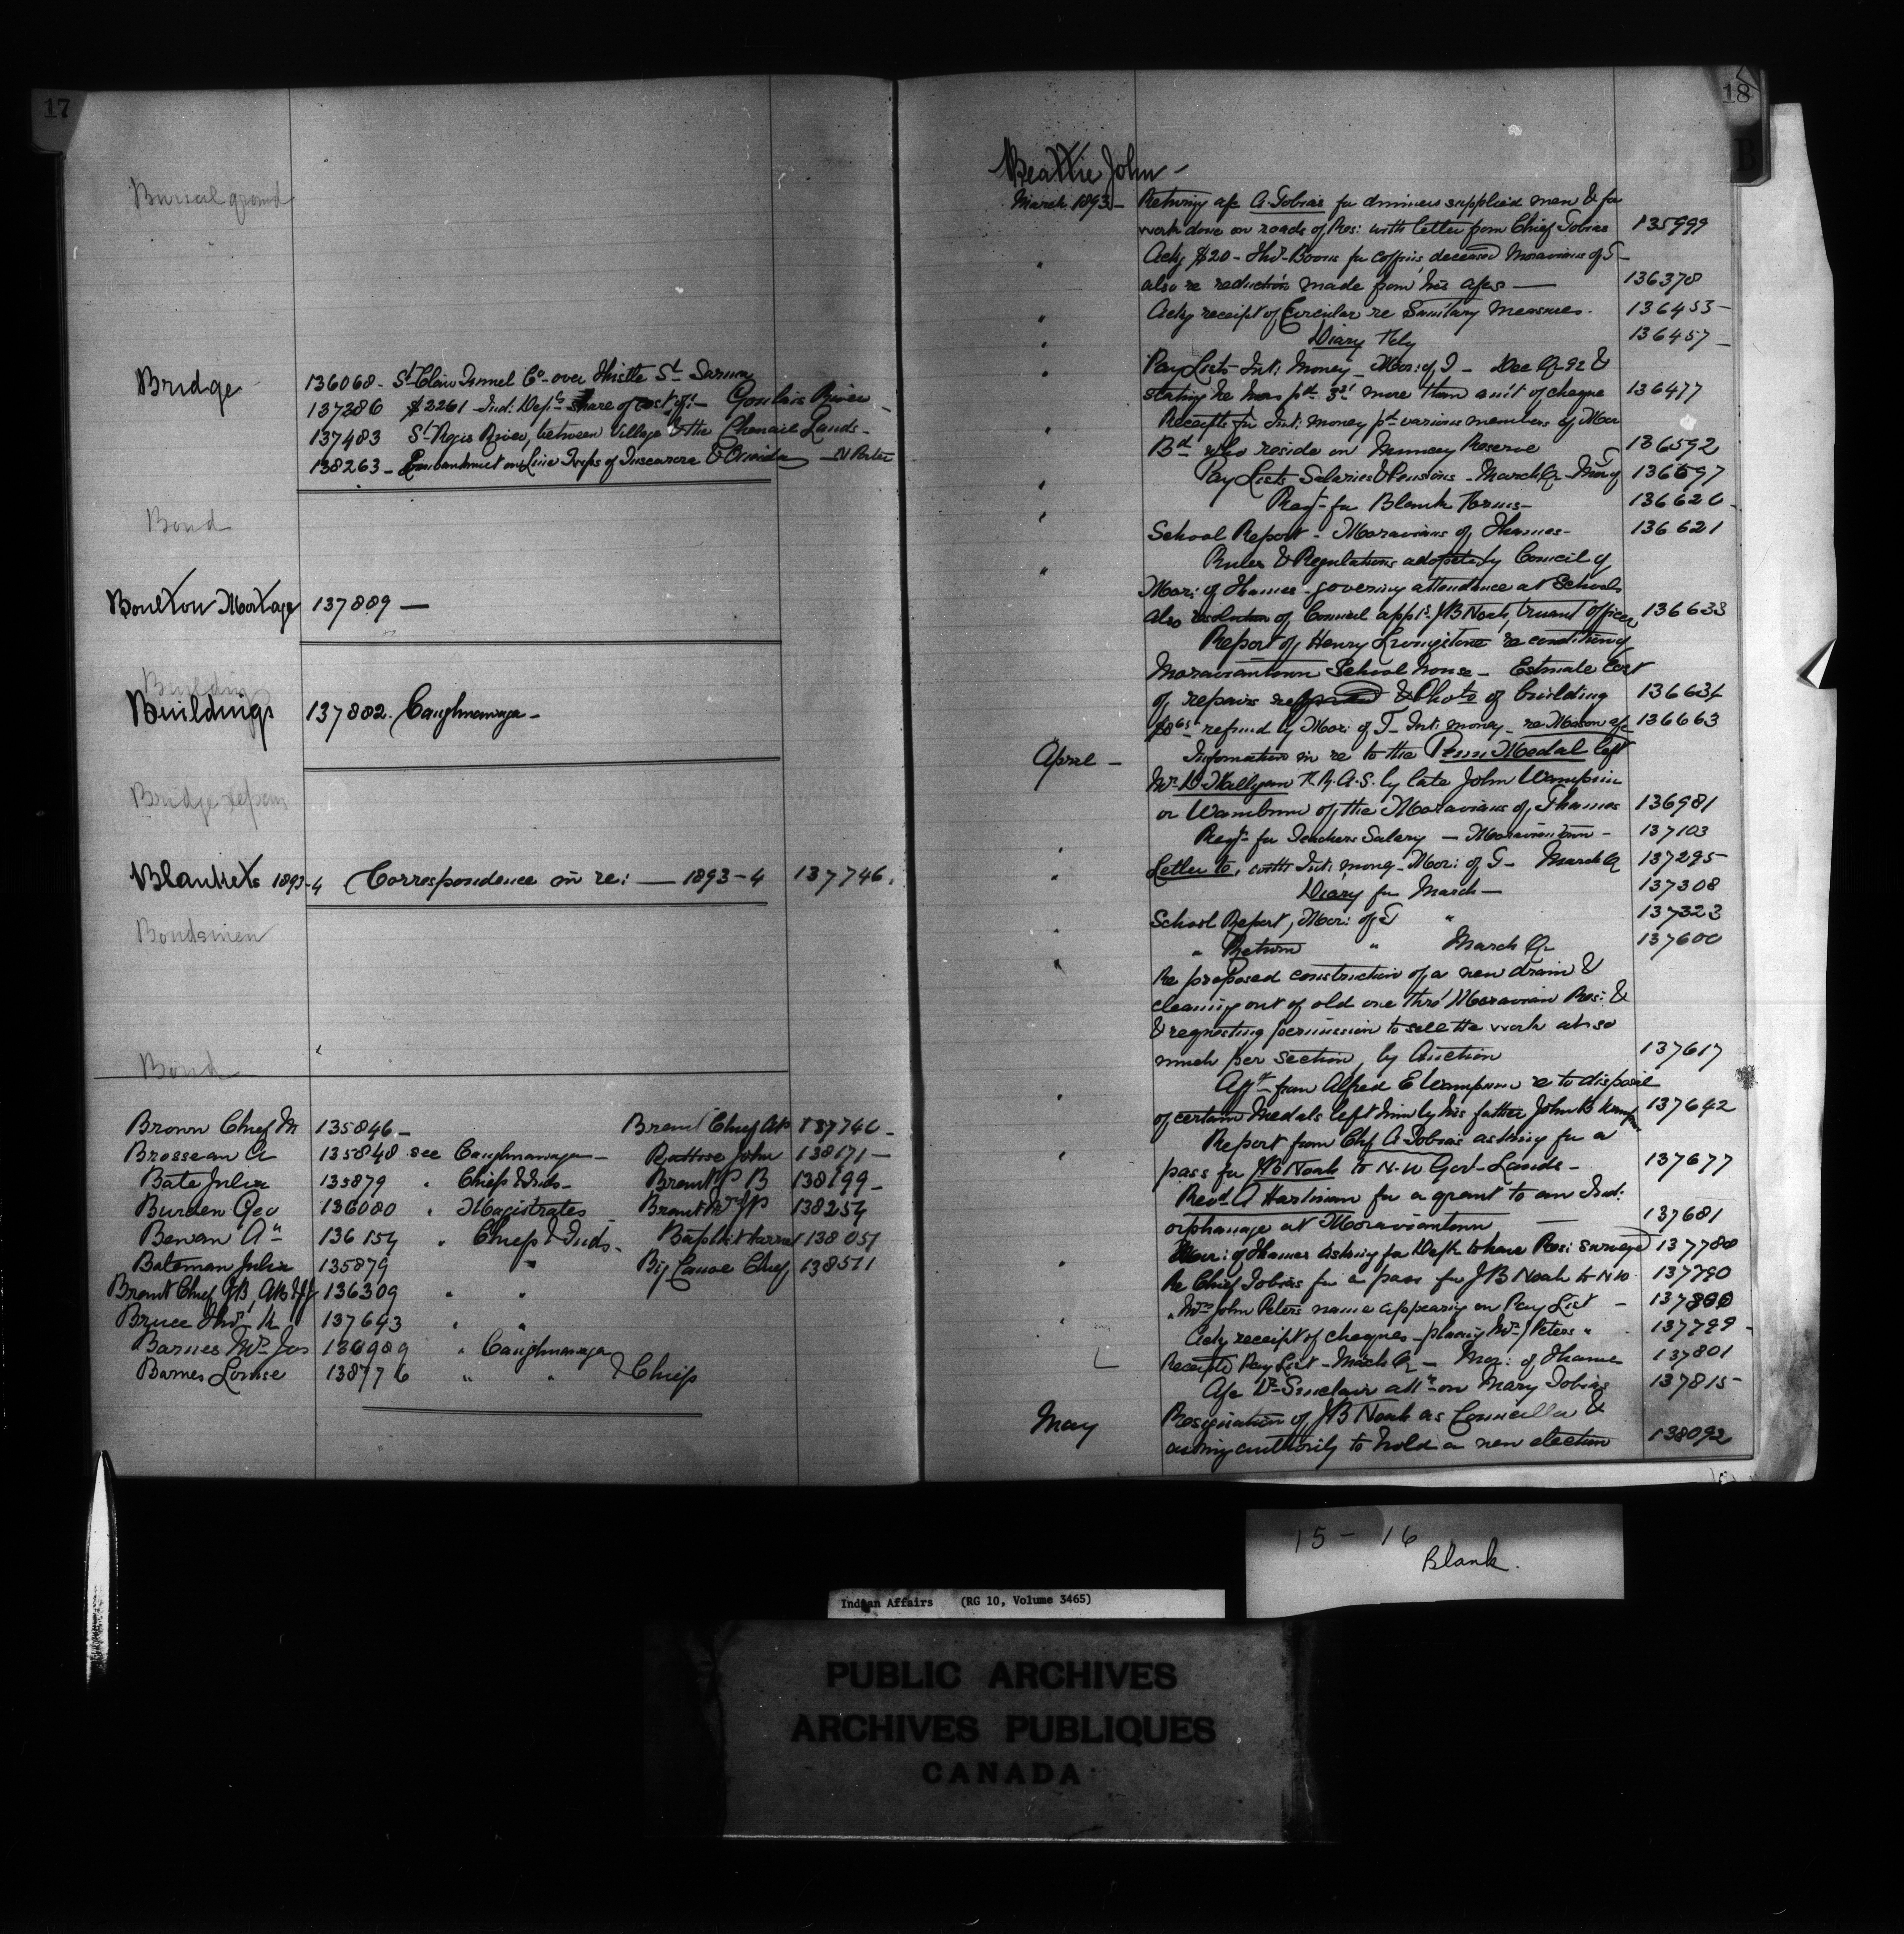 17
Burial ground
Bridge
136068 - St Clair Tunnel Co - over Thistle St Sarnia
137286 $2261 - Ind: Dep's share of cost of: - Goulais River
137483 St Regis River, between Village & the Chenail Lands -
138263 - Embankment on Line Twps of Tuscarora & Oneida - N Porter
Bond
Boulton Mortage 137889 -
Building
Buildings 137882. Caughnawaga -
Bridge repairs
Blankets 1893-4 Correspondence in re: - 1893-4 137746.
Bondsmen
Bond
Brown Chief M 135846 - Brant Chief 137746 -
Brosseau A 135848 see Caughnawaga - John 138171 -
Bate Julia 135879 " Chiefs & Inds - Brant J P B 138199 -
Burden Geo 136080 " Magistrates Brant 138254
Bewan An 136154 " Chiefs & Inds - Baptist 138051
Bateman Julia 135879 " Big Canoe Chief 138511
Brant Chief JB, 136309 " "
Bruce Thos 137643 " "
Barnes Mrs Jos 136989 " Caughnawaga
Barnes Louise 138776 " " & Chiefs
18
B
Beattie John -
March 1893 - Retring a/c A. Tobias for dinners supplied men & for
work done on roads of Res: with letter from Chief Tobias 135999
" Ackg $20 - Thos Boons for coffins, deceased Moravians of T -
also re reductions made from his a/cs - 136378
" Ackg receipt of Circular re Sanitary Measures. 136453 -
" Diary Feby 136457 -
" Pay Lists - Int: Money - Mor: of T - Dec Qr 92 &
stating he has pd 3c more than amt of cheque 136477
" Receipts for Int: money pd various members of Mor
Bd who reside on Muncey Reserve 136592
" Pay Lists Salaries & Pensions - March Qr - 136597
" Reqn for Blank Forms - 136620 -
School Report - Moravians of Thames - 136621
" Rules & Regulations adopted by Council of
Mor: of Thames - governing attendance at Schools
also resolution of Council appt J B Noah, truant officer 136633
Report of Henry Livingstone re condition of
Moraviantown School house - Estimate Cost
of repairs & Photo of building 136634
refund by Mor: of T - Int: money - re a/c 136663
April - Information in re to the Penn Medal left
Mr by late John Wampum
or Wambum of the Moravians of Thames 136981
" Reqn for Teachers Salary - Moraviantown - 137103
" Letter to, with Int: money - Mor: of T - March Qr 137295
Diary for March - 137308
" School Report, Mor: of T " 137323
" " Return " March Qr 137600
Re proposed construction of a new drain &
cleaning out of old one thro' Moravian Res: &
& requesting permission to sell the work at so
much per section, by Auction 137617
" Afft from Alfred E Wampum re to disposal
of certain Medals left him by his father John B Wamp 137642
" Report from Chf A Tobias asking for a
pass for JB Noah to N-W Govt Lands - 137677
Revd A Hartman for a grant to an Ind:
orphanage at Moraviantown - 137681
" Mor: of Thames asking for Dept to have Res: surveyed 137788
Re Chief Tobias for a pass for J B Noah to N W 137790
" " Mrs John Peters name appearing on Pay List - 137800
Ackg receipt of cheques - placing Mrs J Peters " 137799 -
Receipted Pay List - March Qr - Mor: of Thames 137801
A/c Dr Sinclair attn on Mary Tobias 137815 -
May Resignation of J B Noah as Councillor &
asking authority to hold a new election 138092
15 - 16
Blank.
Indian Affairs (RG 10, Volume 3465)
PUBLIC ARCHIVES
ARCHIVES PUBLIQUES
CANADA